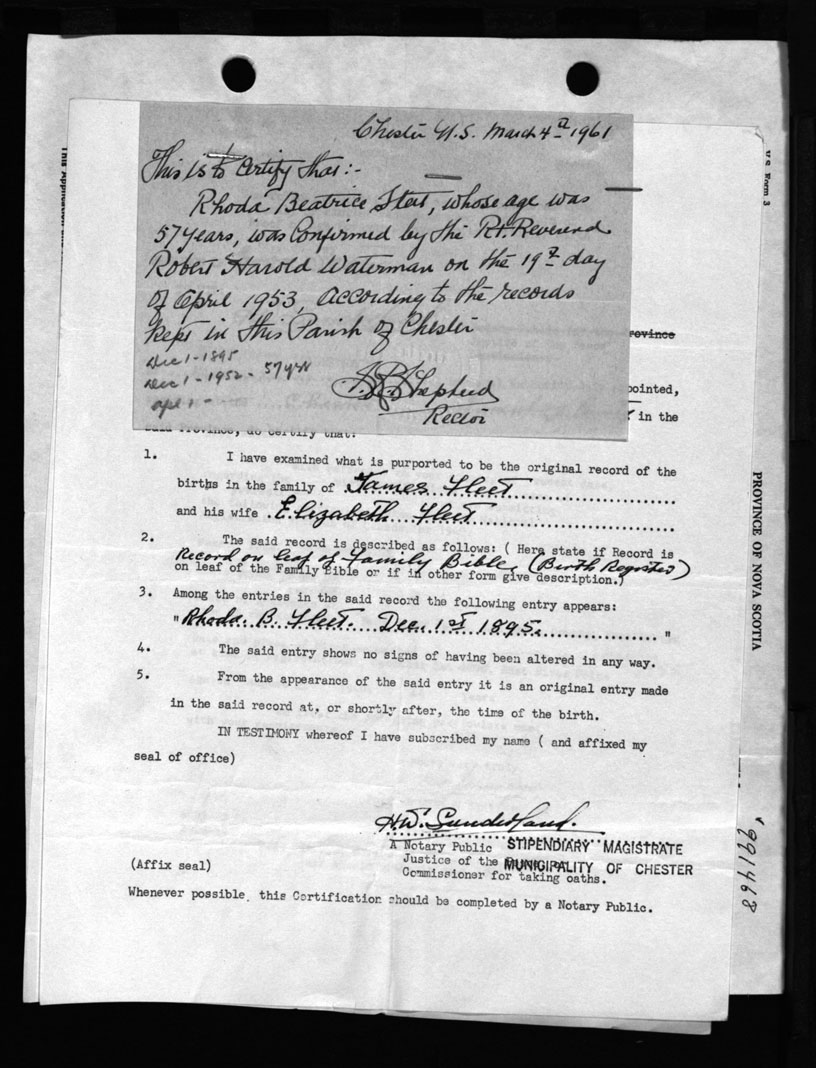 Chester N.S. March 4th 1961
This is to Certify that:-
Rhoda Beatrice Fleet, whose age was
57 years, was Confirmed by the Rt. Reverend
Robert Harold Waterman on the 19th day
of April 1953, according to the records
kept in this Parish of Chester
Dec 1 - 1895
Dec 1 - 1952 - 57 yrs
apl 1 -
Shepherd
Rector
This Application
V.S. Form 3
Province
pointed,
in the
said Province, do certify that:
1. I have examined what is purported to be the original record of the
births in the family of James Fleet
and his wife Elizabeth Fleet
2. The said record is described as follows: ( Here state if Record is
Record on leaf of Family Bible, (Birth Register)
on leaf of the Family Bible or if in other form give description.)
3. Among the entries in the said record the following entry appears:
" Rhoda. B. Fleet. Dec. 1st 1895. "
4. The said entry shows no signs of having been altered in any way.
5. From the appearance of the said entry it is an original entry made
in the said record at, or shortly after, the time of the birth.
IN TESTIMONY whereof I have subscribed my name ( and affixed my
seal of office)
H.W. Sunderland.
A Notary Public STIPENDIARY MAGISTRATE
Justice of the MUNICIPALITY OF CHESTER
Commissioner for taking oaths.
(Affix seal)
Whenever possible, this Certification should be completed by a Notary Public.
PROVINCE OF NOVA SCOTIA
991468